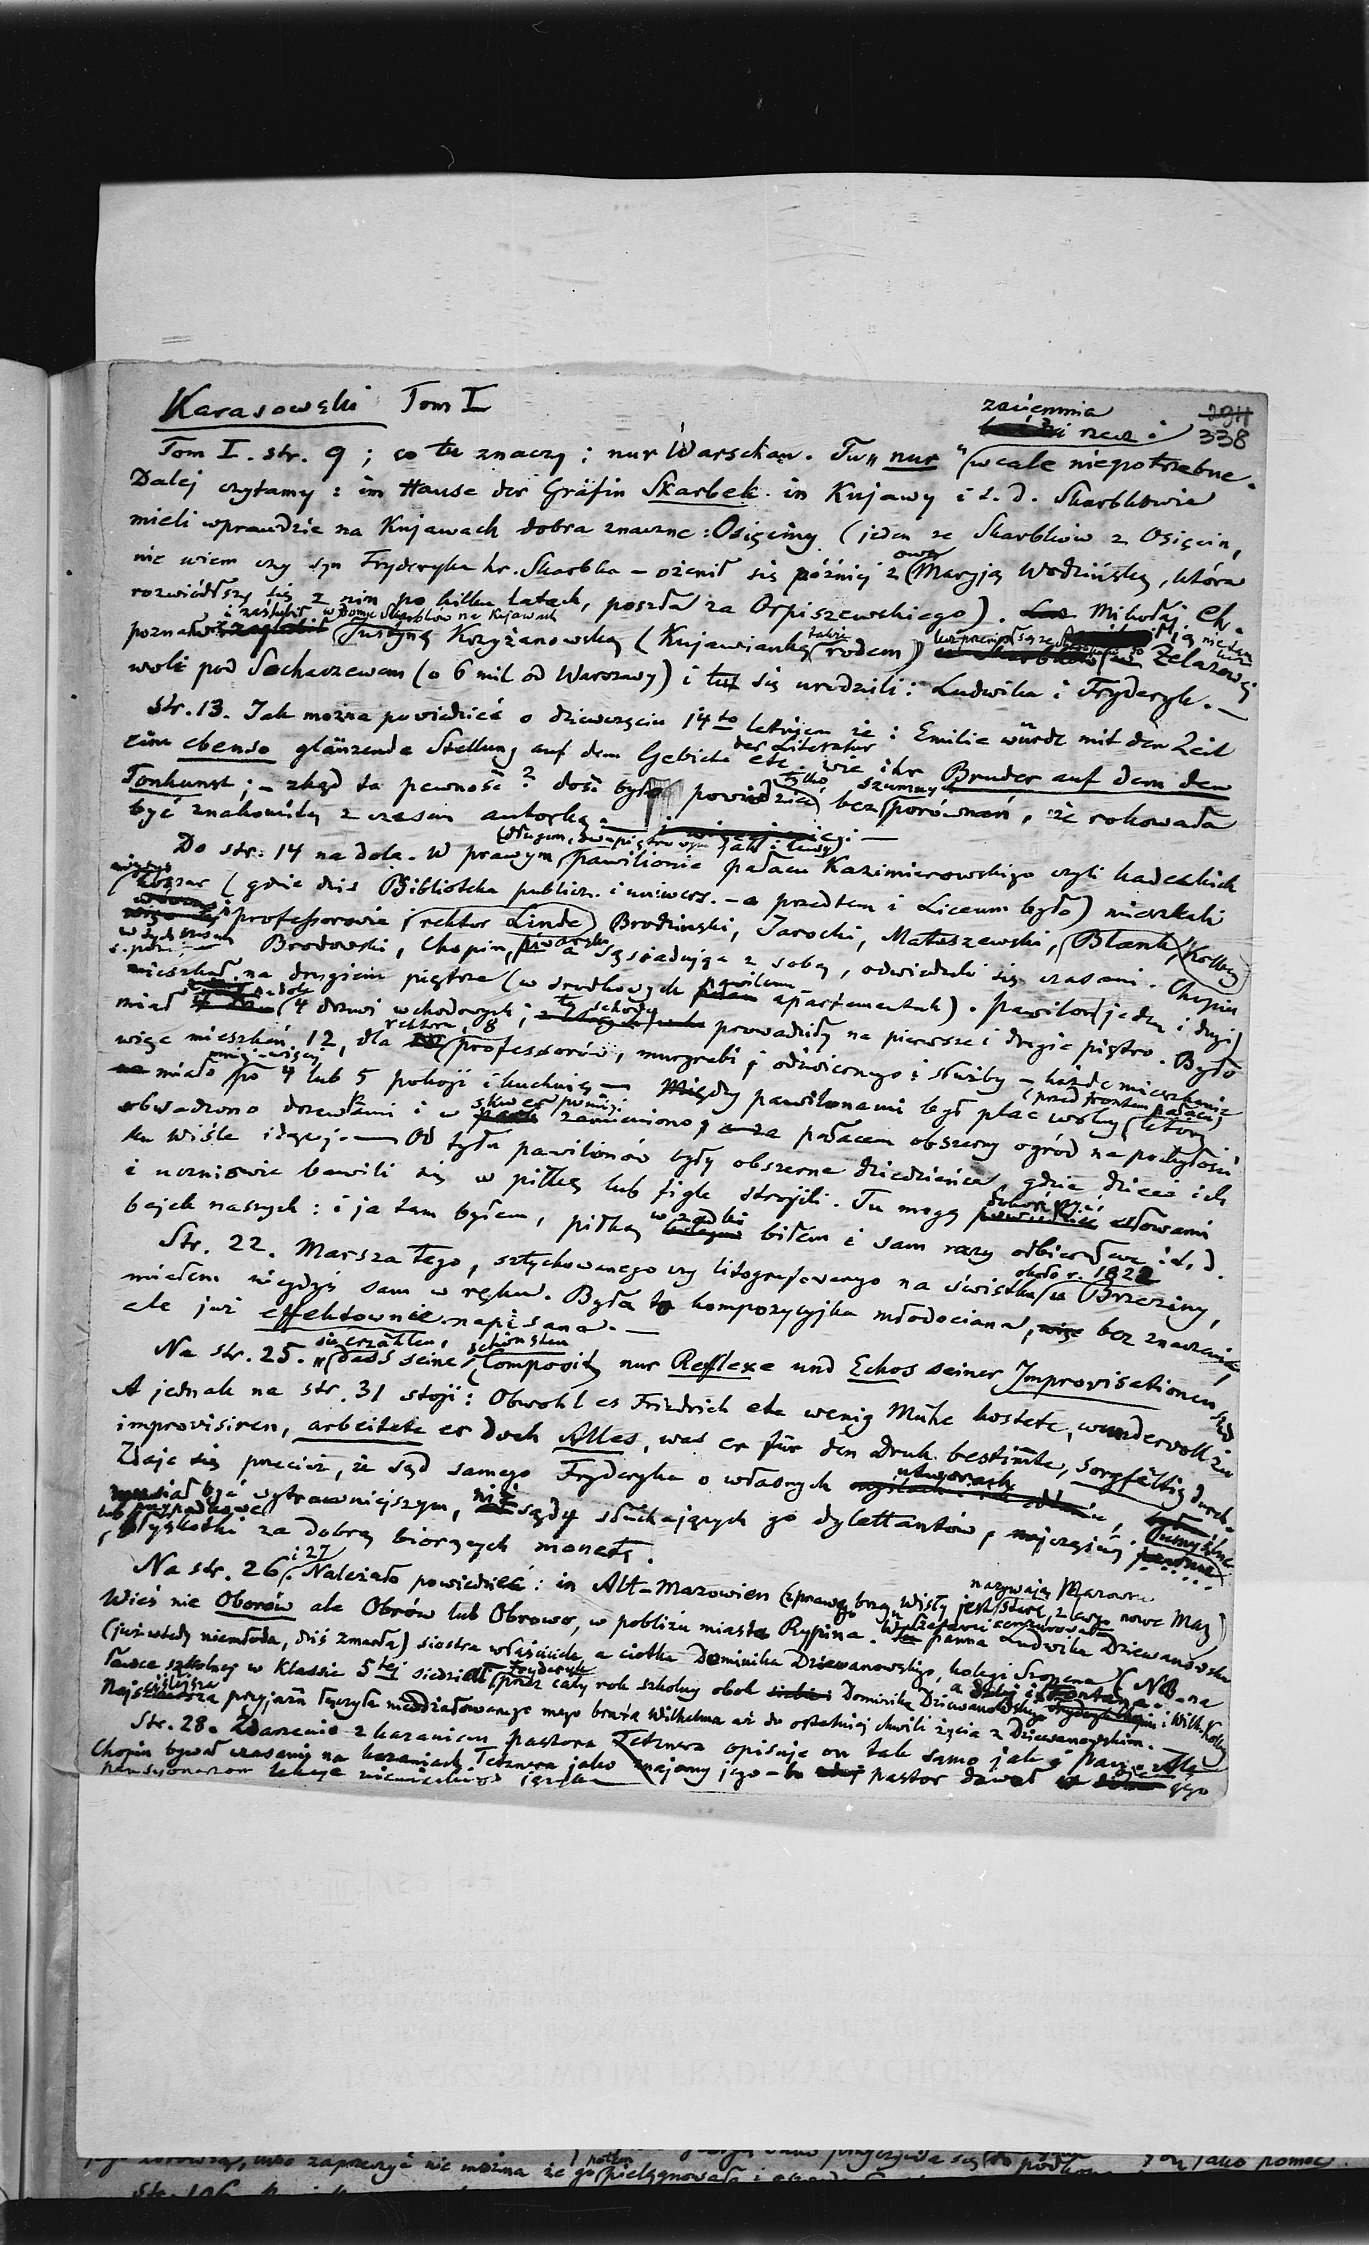 Karasowski Tom I
zaciemnia
rzecz :
2911
338
Tom I. str. 9 ; co tu znaczy : nur Warschau. Tu „nur" (wcale niepotrzebne.
Dalej czytamy : im Hause der Gräfin Skarbek in Kujawy i t. d. Skarbkowie
mieli wprawdzie na Kujawach dobra znaczne : Osięciny (jeden ze Skarbków z Osięcin,
nie wiem czy syn Fryderyka hr. Skarbka – ożenił się później z ową Maryją Wodzińską, która
rozwiódłszy się z nim po kilku latach, poszła za Orpiszewskiego). Mikołaj Ch.
i zaślubił w domu Skarbków na Kujawach
poznał Justynę Krzyżanowską (Kujawiankę także rodem) Żelazowej
woli pod Sochaczewem (o 6 mil od Warszawy) i tu się urodzili : Ludwika i Fryderyk. —
Str. 13. Jak można powiedzieć o dziewczęciu 14to letniem że : Emilie würde mit der Zeit
eine ebenso glänzende Stellung auf dem Gebiete der Literatur etc. wie ihr Bruder auf dem der
Tonkunst ; – zkąd ta pewność ? dość było powiedzieć tylko bez szumnych porównań, że rokowała
być znakomitą z czasem autorką. —
(długim, dwupiętrowym
Do str. 14 na dole. W prawym pawilionie pałacu Kazimierowskiego czyli kadeckich
koszar (gdzie dziś Biblioteka publicz. i uniwers. – a przedtem i Liceum było) mieszkali
professorowie (rektor Linde) Brodziński, Jarocki, Matuszewski, (Blank, Kolberg
Brodowski, Chopin, a sąsiadując z sobą, odwiedzali się czasami. Chopin
mieszkał na drugiem piętrze (w środkowych pawilonu apartamentach). Pawilon (jeden i drugi)
miał na dole (4 drzwi wchodowych ; ty schody prowadziły na pierwsze i drugie piętro. Było
więc mieszkań 12, dla rektora, 8 professorów, murgrabi, i odźwiernego i służby – każde mieszkanie
miało mniej-więcej po 4 lub 5 pokoji i kuchnię — Między pawilonami był plac wolny (przed frontem pałacu) który
obwadzono drzewkami i w skwer później zamieniono, a za pałacem obszerny ogród na pochyłości
ku Wiśle idącej. — Od tyłu pawilionów były obszerne dziedzińce, gdzie dzieci ich
i uczniowie bawili się w piłkę lub figle stroili. Tu mogę dokończyć słowami
bajek naszych : i ja tam byłem, piłkę w zadki biłem i sam razy odbierałem i t. d.
Str. 22. Marsza tego, sztychowanego czy litografowanego na świstku około r. 1822 u Brzeziny,
miałem niegdyś sam w ręku. Była to kompozycyjka młodociana, bez znaczenia,
ale już effektownie napisana. —
Na str. 25. „sie erzählen, dass seine schönsten Composit. nur Reflexe und Echos seiner Improvisationen sind
A jednak na str. 31 stoji : Obwohl es Friedrich etc wenig Mühe kostete, wundervoll zu
improvisiren, arbeitete er doch Alles, was er für den Druck bestimte, sorgfältig durch.
Zdaje się przecież, że sąd samego Fryderyka o własnych utworach
musiał być wytrawniejszym, niż sądy słuchających go dylettantów, najczęściej
lub przypadkowe błyskotki za dobrą biorących monetę.
Na str. 26 i 27 Należało powiedzieć : in Alt-Mazowien (z prawego brzegu Wisły jest stare, z lewego nowe Maz)
Wieś nie Oborów ale Obrów lub Obrowo, w pobliżu miasta Rypina. panna Ludwika Dziewanowska
(już wtedy niemłoda, dziś zmarła) siostra właściciela, a ciotka Dominika Dziewanowskiego, kolegi Szopena (NB. na
ławce szkolnej w klassie 5tej siedział Fryderyk przez cały rok szkolny obok Dominika Dziewanowskiego
Najściślejsza przyjaźń łączyła nieodżałowanego mego brata Wilhelma aż do ostatniej chwili życia z Dziewanowskim. —
Str. 28. Zdarzenie z kazaniem pastora Tetznera opisuje on tak samo jak i Pan.
Chopin bywał czasami na kazaniach Tetznera jako znajomy jego – bo pastor dawał jego
pensyonarzom lekcye niemieckiego języka